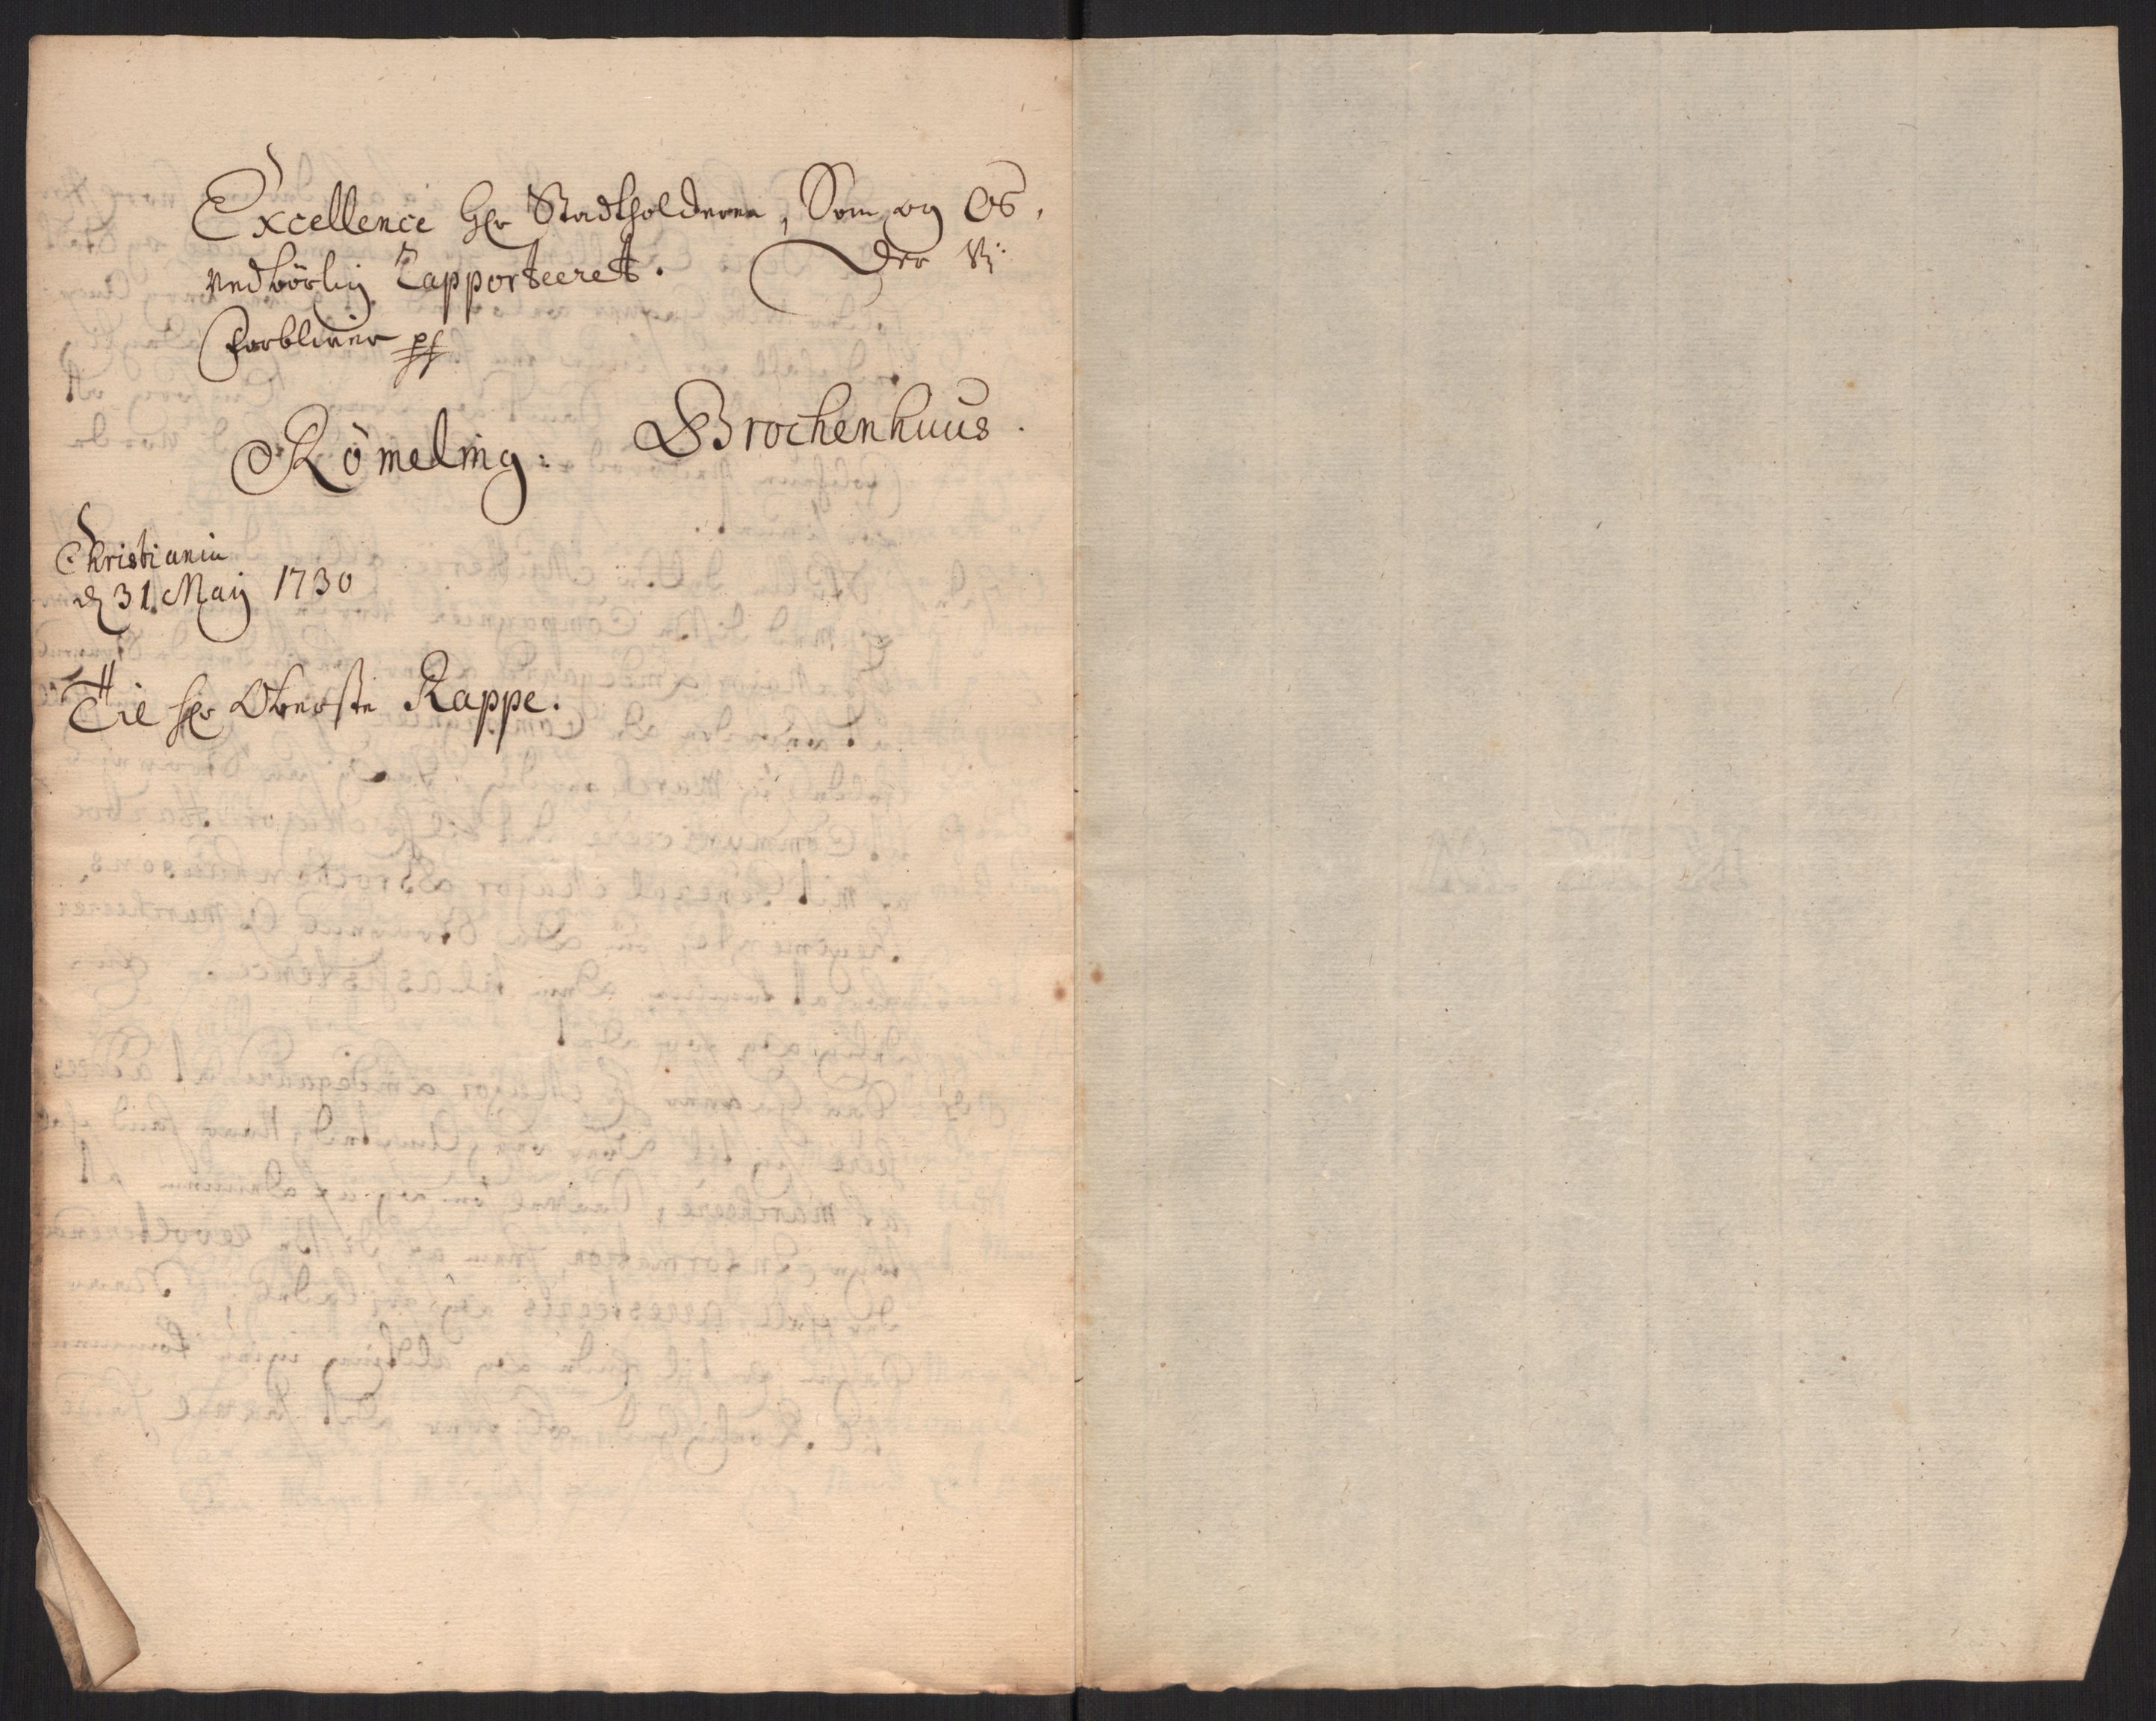 Excellence Hr Stadtholderen, Som og Os,
vedbörlig Rapporteeret. Der Vi
forbliver
Römeling. Brochenhuus.
Christiania
d 31 Maij 1730
Til Hr Oberste Rappe.